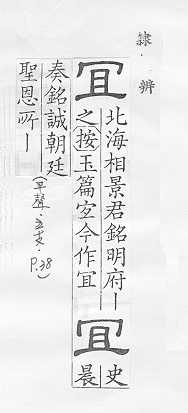 隸辨
冝
北海相景君銘明府丨
之按玉篇宐今作宜
冝
史
晨
奏銘誠朝廷
聖恩所丨
(平聲·五支·P.38)